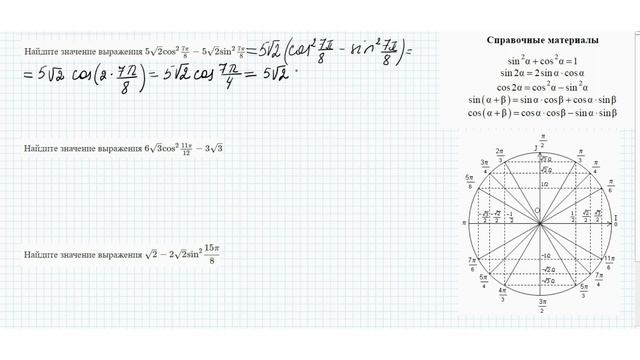 Найдите значение выражения 5√2cos² 7π/8 − 5√2sin² 7π/8 = 5√2 (cos² 7π/8 − sin² 7π/8) =
= 5√2 cos(2 · 7π/8) = 5√2 cos 7π/4 = 5√2 ·
Найдите значение выражения 6√3cos² 11π/12 − 3√3
Найдите значение выражения √2 − 2√2sin² 15π/8
Справочные материалы
sin²α + cos²α = 1
sin2α = 2sinα · cosα
cos2α = cos²α − sin²α
sin(α + β) = sinα · cosβ + cosα · sinβ
cos(α + β) = cosα · cosβ − sinα · sinβ
π/2
2π/3 π/3
3π/4 π/4
5π/6 1/2 π/6
π −√3/2 −√2/2 −1/2 0 1/2 √2/2 √3/2
7π/6 −1/2 11π/6
5π/4 7π/4
4π/3 5π/3
3π/2